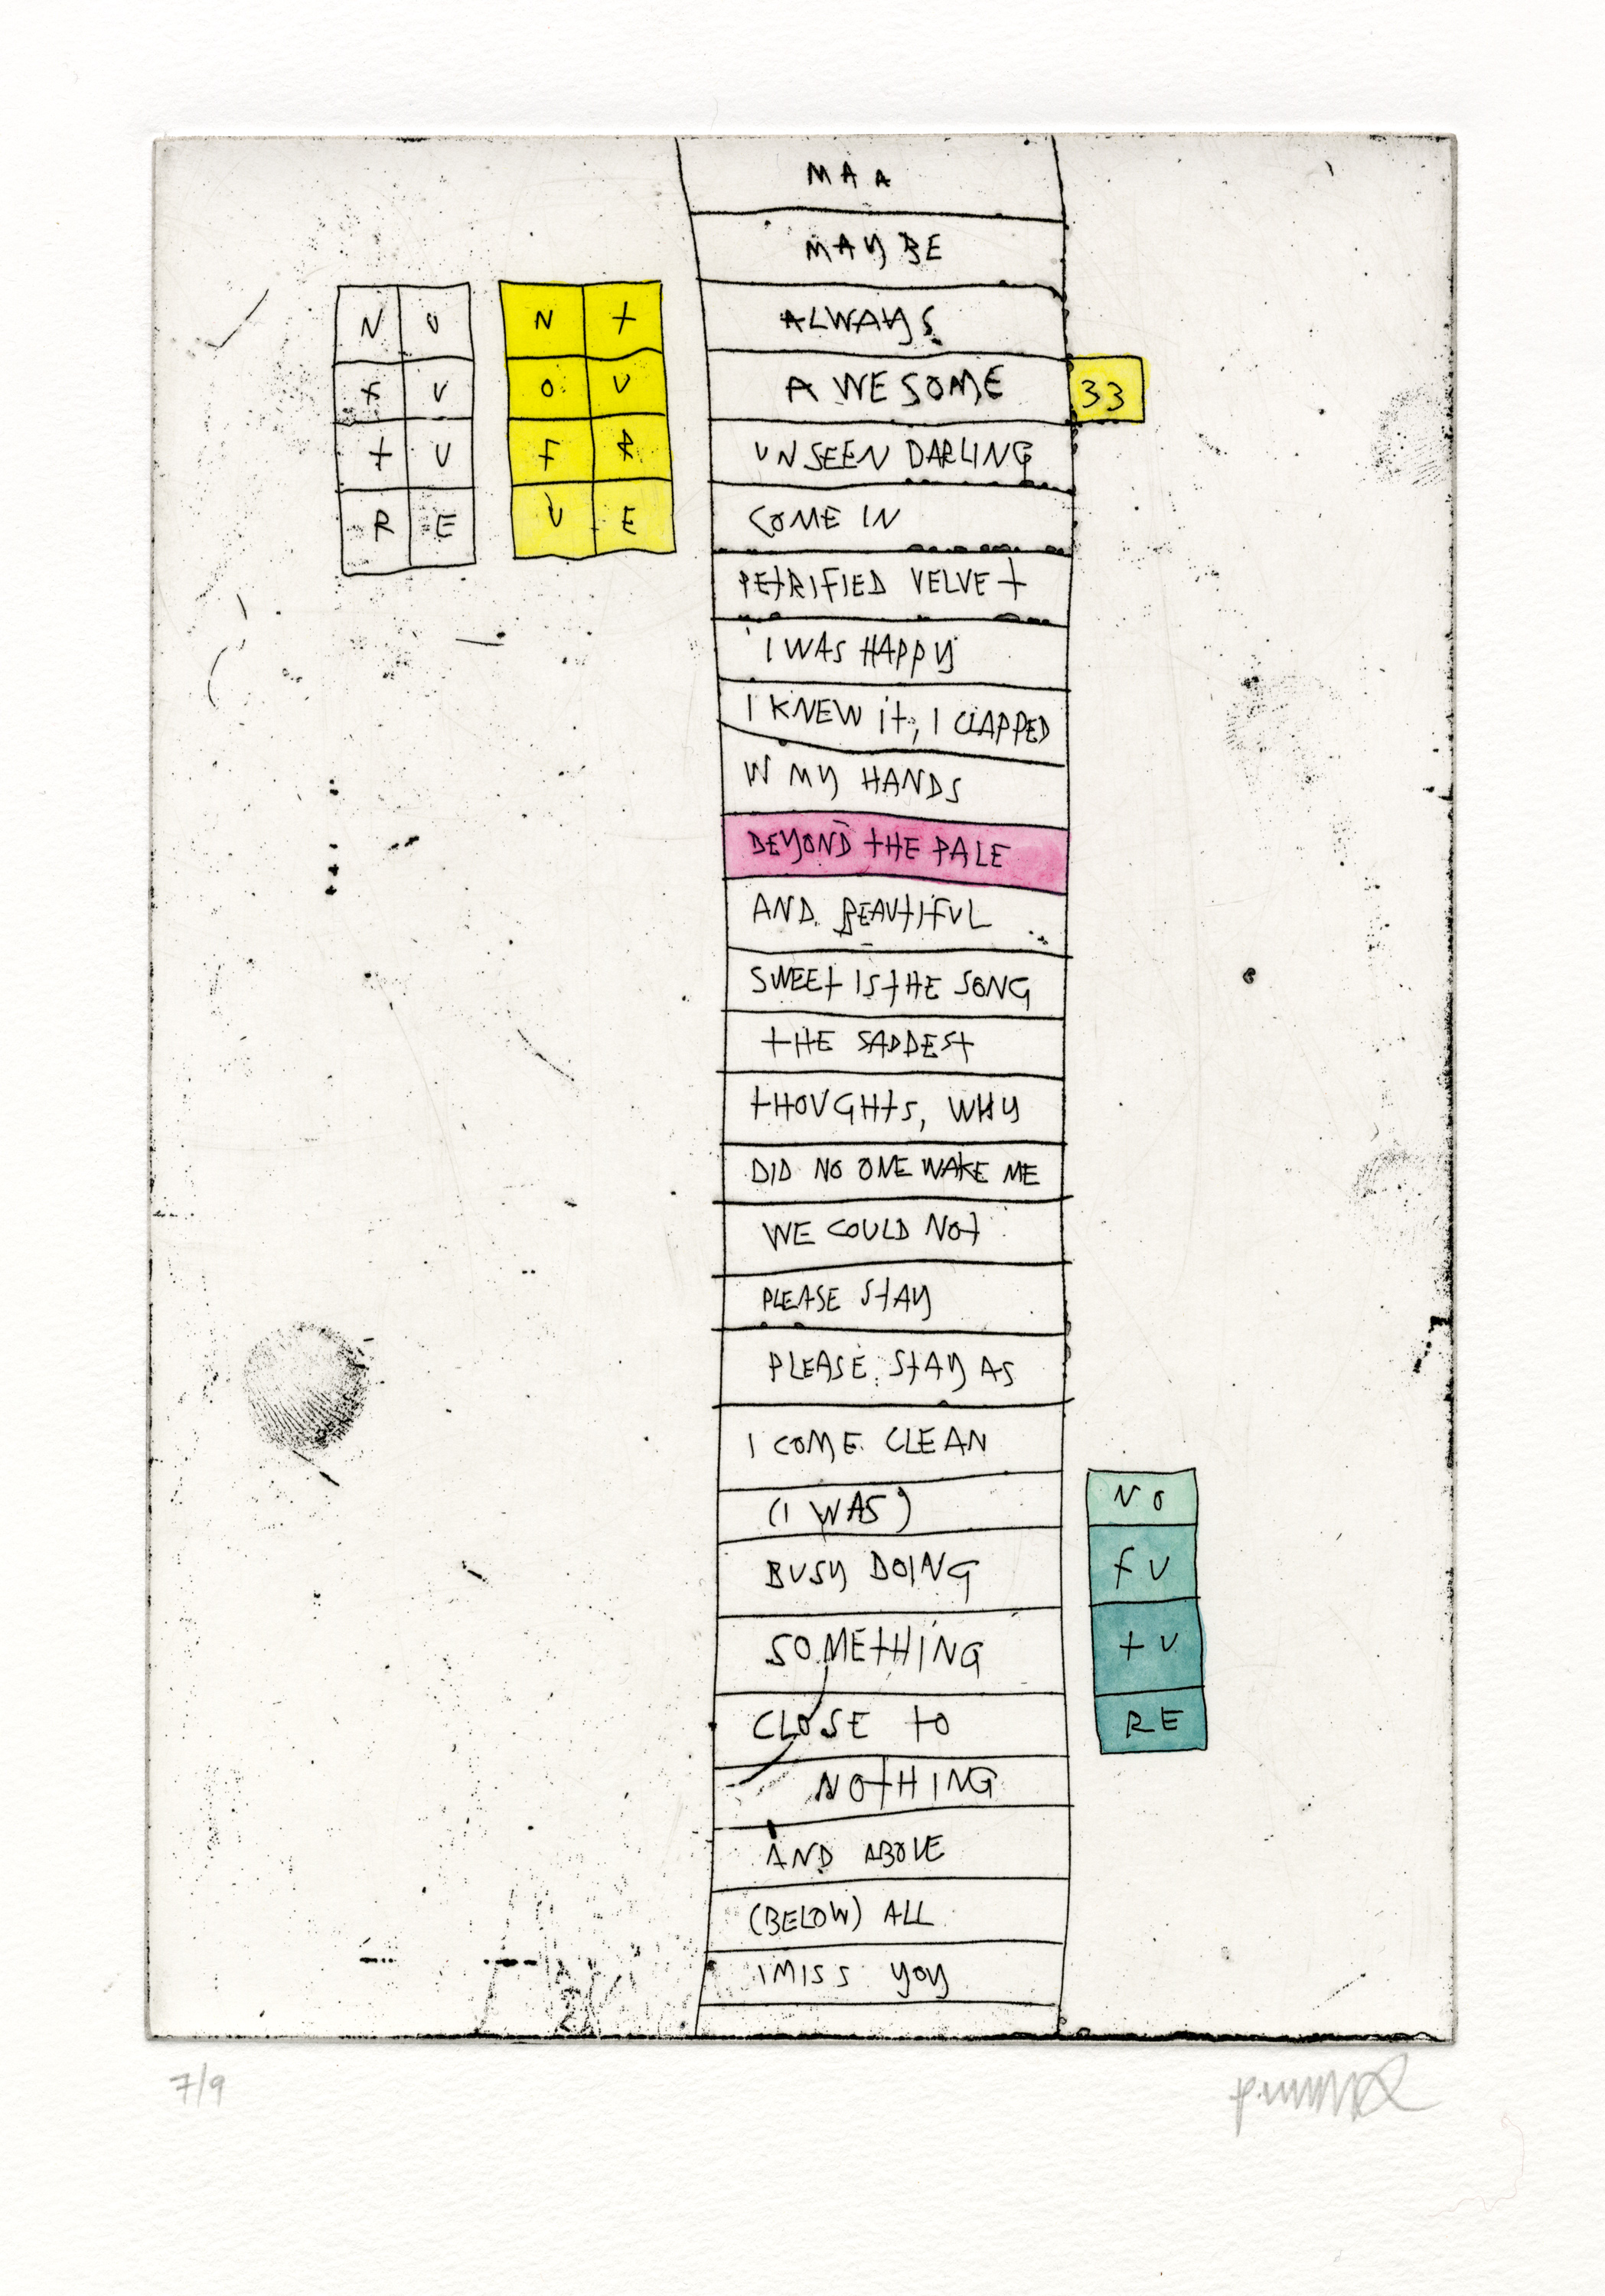 MAA
MAYBE
ALWAYS
AWESOME
33
UNSEEN DARLING
COME IN
PETRIFIED VELVET
I WAS HAPPY
I KNEW it, I CLAPPED
IN MY HANDS
BEYOND tHE PALE
AND BEAUtIFUL
SWEEt IS tHE SONG
tHE SADDESt
tHOUGHtS, WHY
DID NO ONE WAKE ME
WE COULD NOt
PLEASE StAY
PLEASE StAY AS
I COME CLEAN
(I WAS)
BUSY DOING
SOMEtHING
CLOSE tO
NOtHING
AND ABOVE
(BELOW) ALL
I MISS YOY
N O
F U
t U
R E
N t
O U
F R
U E
NO
FU
tU
RE
7/9